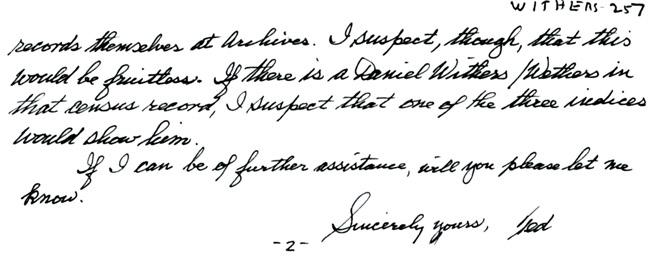 WITHERS-257
records themselves at Archives. I suspect, though, that this
would be fruitless. If there is a Daniel Withers/Wethers in
that census record, I suspect that one of the three indices
would show him.
If I can be of further assistance, will you please let me
know.
Sincerely yours, Ted
-2-